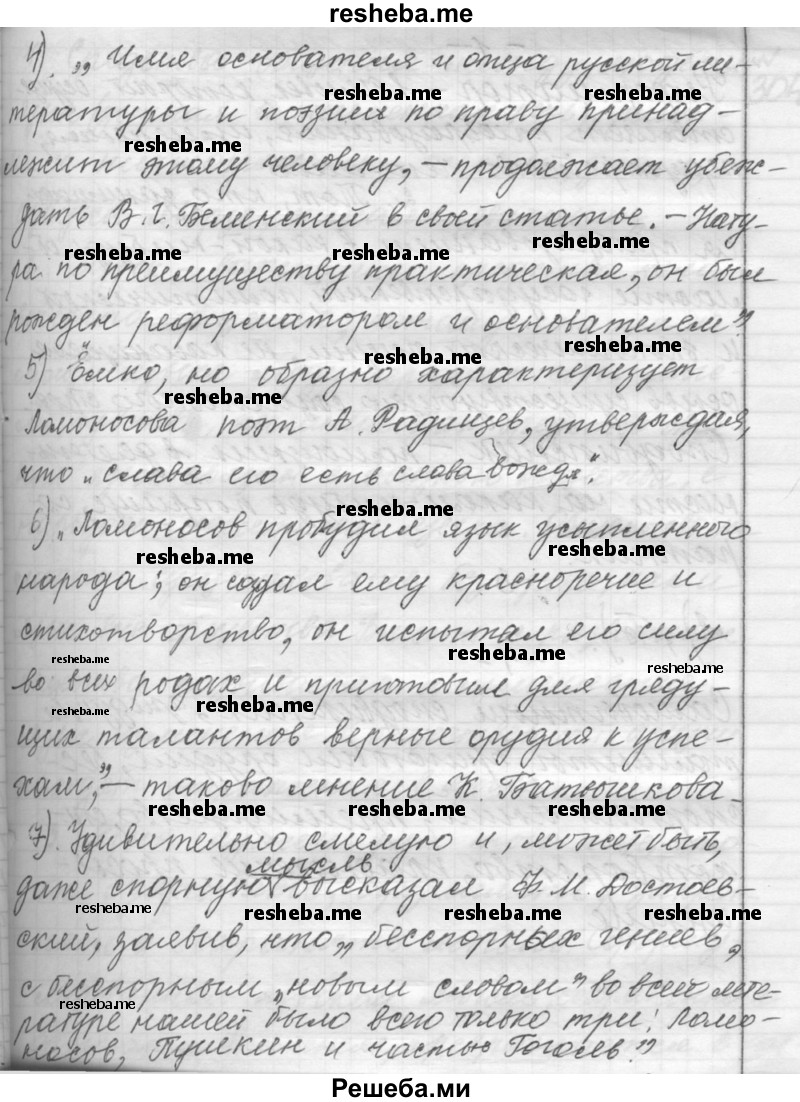 resheba.me
4). „Имя основателя и отца русской ли-
resheba.me resheba.me
тературы и поэзии по праву принад-
resheba.me resheba.me
лежит этому человеку, – продолжает убеж-
дать В.Г. Белинский в своей статье. – Нату-
resheba.me resheba.me
ра по преимуществу практическая, он был
рожден реформатором и основателем"
resheba.me resheba.me
5) Ёмко, но образно характеризует
resheba.me
Ломоносова поэт А. Радищев, утверждая,
что „слава его есть слава вождя".
resheba.me
6) „Ломоносов пробудил язык усыпленного
resheba.me resheba.me
народа; он создал ему красноречие и
стихотворство, он испытал его силу
resheba.me resheba.me resheba.me
во всех родах и приготовил для гряду-
resheba.me resheba.me
щих талантов верные орудия к успе-
хам," – таково мнение К. Батюшкова
resheba.me resheba.me resheba.me
7). Удивительно смелую и, может быть,
мысль
даже спорную высказал Ф.М. Достоев-
resheba.me resheba.me resheba.me resheba.me
ский, заявив, что „бесспорных гениев,
с бесспорным „новым словом" во всей лите-
resheba.me
ратуре нашей было всего только три: Ломо-
носов, Пушкин и частью Гоголь."
Решеба.ми